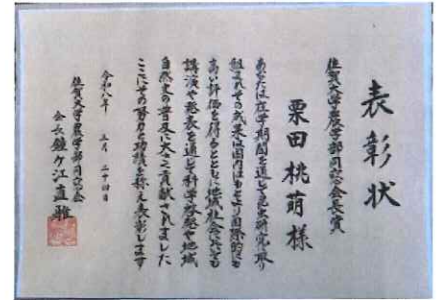 表彰状
佐賀大学農学部同窓会長賞
栗田桃萌様
あなたは在学期間を通じて昆虫研究に取り
組まれその成果は国内はもとより国際的にも
高い評価を得るとともに地域社会においても
講演や発表を通じて科学啓発や地域
自然史の普及に大きく貢献されました
ここにその努力と功績を称え表彰します
令和八年 三月 二十四日
佐賀大学農学部同窓会
会長 鐘ヶ江直雅